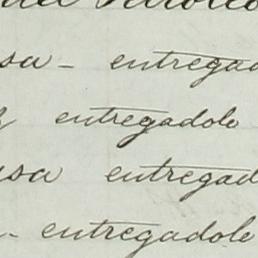 sa - entregad
entregadole
usa entregad
- entregadole